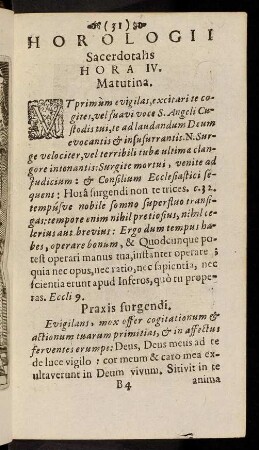 (31)
HOROLOGII
Sacerdotalis
HORA IV.
Matutina.
UT primùm evigilas, excitari te co-
gites, vel suavi voce S. Angeli Cu-
stodis tui, te ad laudandum Deum
evocantis & insusurrantis. N. Sur-
ge velociter, vel terribili tubæ ultima clan-
gore intonantis: Surgite mortui, venite ad
judicium: & Consilium Ecclesiastici se-
quens: Horâ surgendi non te trices. c. 32.
tempúsve nobile somno superfluo transi-
gas: tempore enim nihil pretiosius, nihil ce-
lerius aut brevius: Ergo dum tempus ha-
bes, operare bonum, & Quodcunque po-
test operari manus tua, instanter operare;
quia nec opus, nec ratio, nec sapientia, nec
scientia erunt apud Inferos, quò tu prope-
ras. Eccli 9.
Praxis surgendi.
Evigilans, mox offer cogitationum &
actionum tuarum primitias, & in affectus
ferventes erumpe: Deus, Deus meus ad te
de luce vigilo: cor meum & caro mea ex-
ultaverunt in Deum vivum. Sitivit in te
B 4 anima